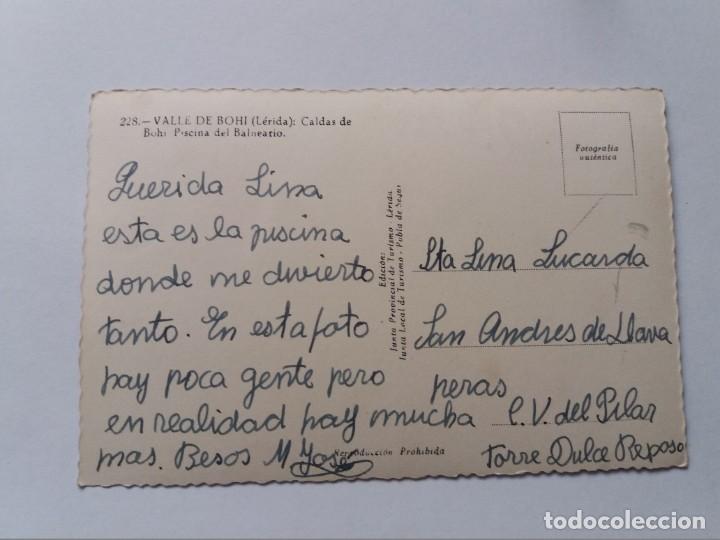 228.— VALLE DE BOHI (Lérida): Caldas de
Bohi Piscina del Balneario.
Fotografía
auténtica
Querida Lina
esta es la piscina
donde me divierto
tanto. En esta foto
hay poca gente pero
en realidad hay mucha
mas. Besos M José
Edición:
Junta Provincial de Turismo - Lérida
Junta Local de Turismo - Pobla de Segur
Reproducción Prohibida
Sta Lina Lucarda
San Andres de Llava
neras
C. V. del Pilar
torre Dulce Reposo
todocoleccion
todocoleccion.net